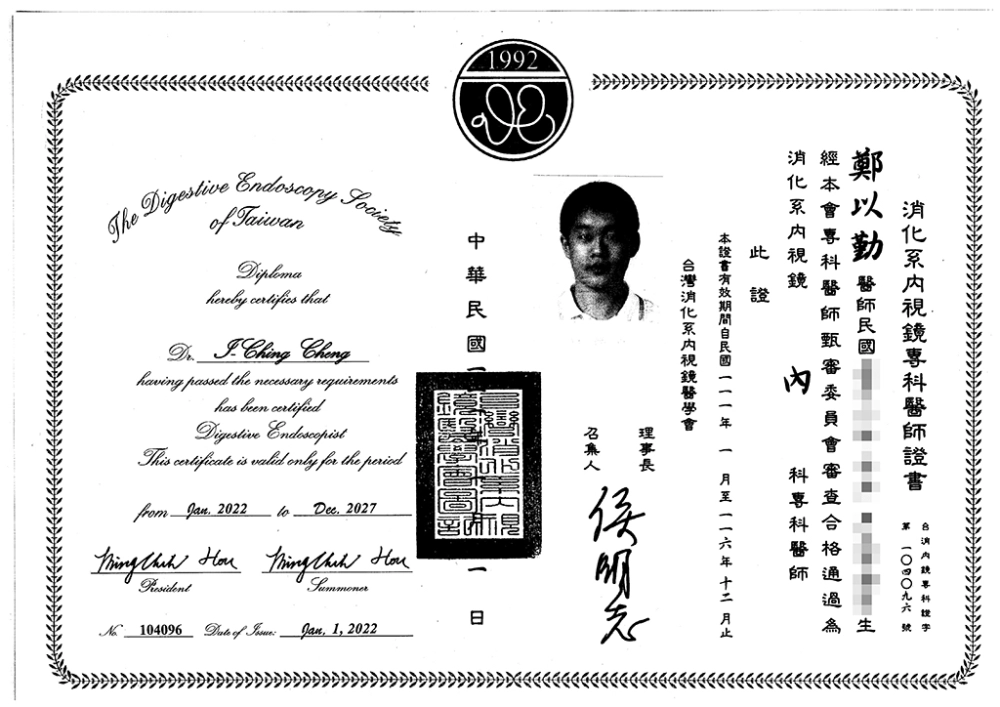 1992
The Digestive Endoscopy Society
of Taiwan
Diploma
hereby certifies that
Dr. I-Ching Cheng
having passed the necessary requirements
has been certified
Digestive Endoscopist
This certificate is valid only for the period
from Jan. 2022 to Dec. 2027
Ming Chih Hou Ming Chih Hou
President Summoner
No. 104096 Date of Issue: Jan, 1, 2022
消化系內視鏡專科醫師證書
台消內鏡專科證字
第一〇四〇九六號
鄭以勤 醫師民國 生
經本會專科醫師甄審委員會審查合格通過為
消化系內視鏡 內 科專科醫師
此證
本證書有效期間自民國一一一年一月至一一六年十二月止
台灣消化系內視鏡醫學會
理事長
召集人
侯明志
中華民國一 一日